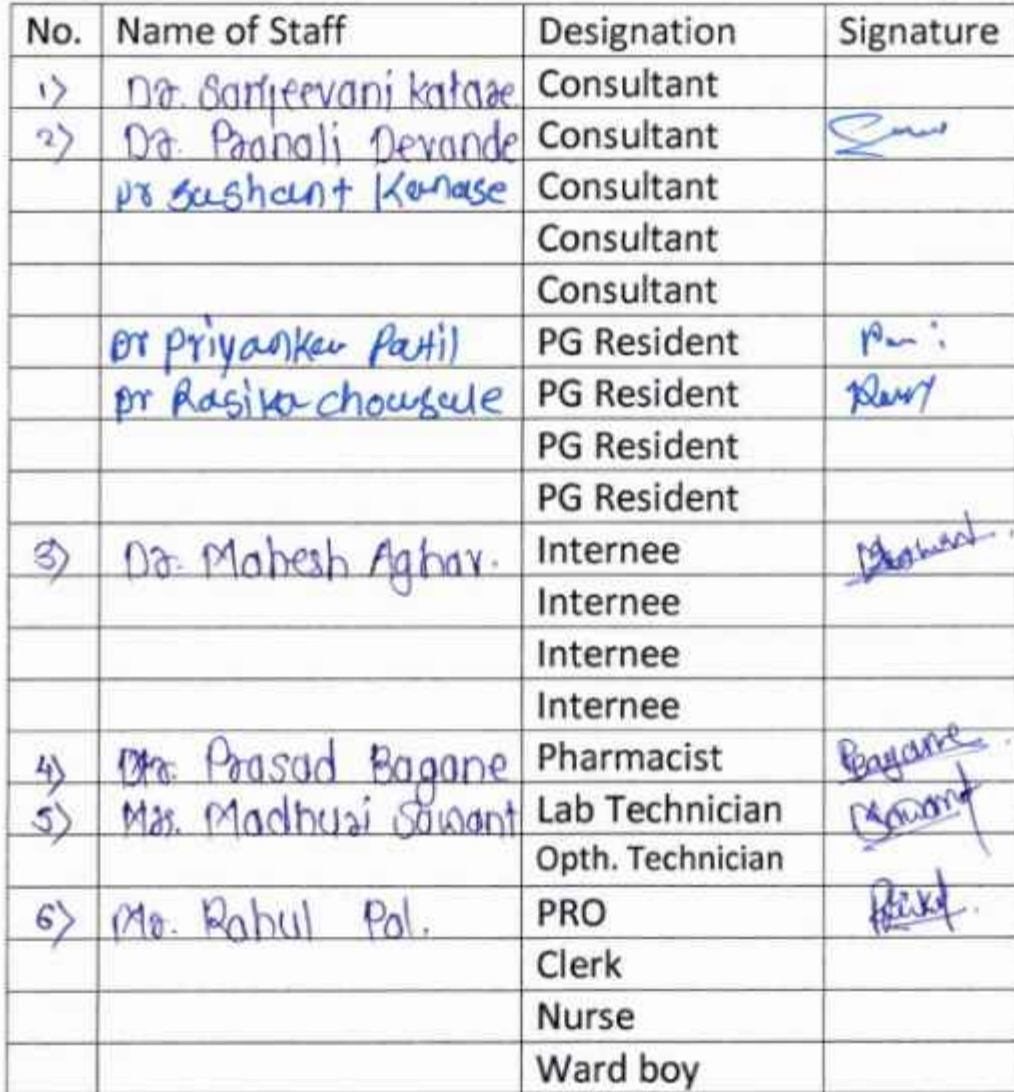 No. Name of Staff Designation Signature
1) Dr. Sanjeevani Katare Consultant
2) Dr. Pranali Devande Consultant
Dr Sushant Kanase Consultant
Consultant
Consultant
Dr Priyanka Patil PG Resident
Dr Rasika Chougule PG Resident
PG Resident
PG Resident
3) Dr. Mahesh Aghav. Internee
Internee
Internee
Internee
4) Prasad Bagane Pharmacist Bagane
5) Mrs. Madhuri Sawant Lab Technician Sawant
Opth. Technician
6) Mr. Rahul Pol. PRO
Clerk
Nurse
Ward boy